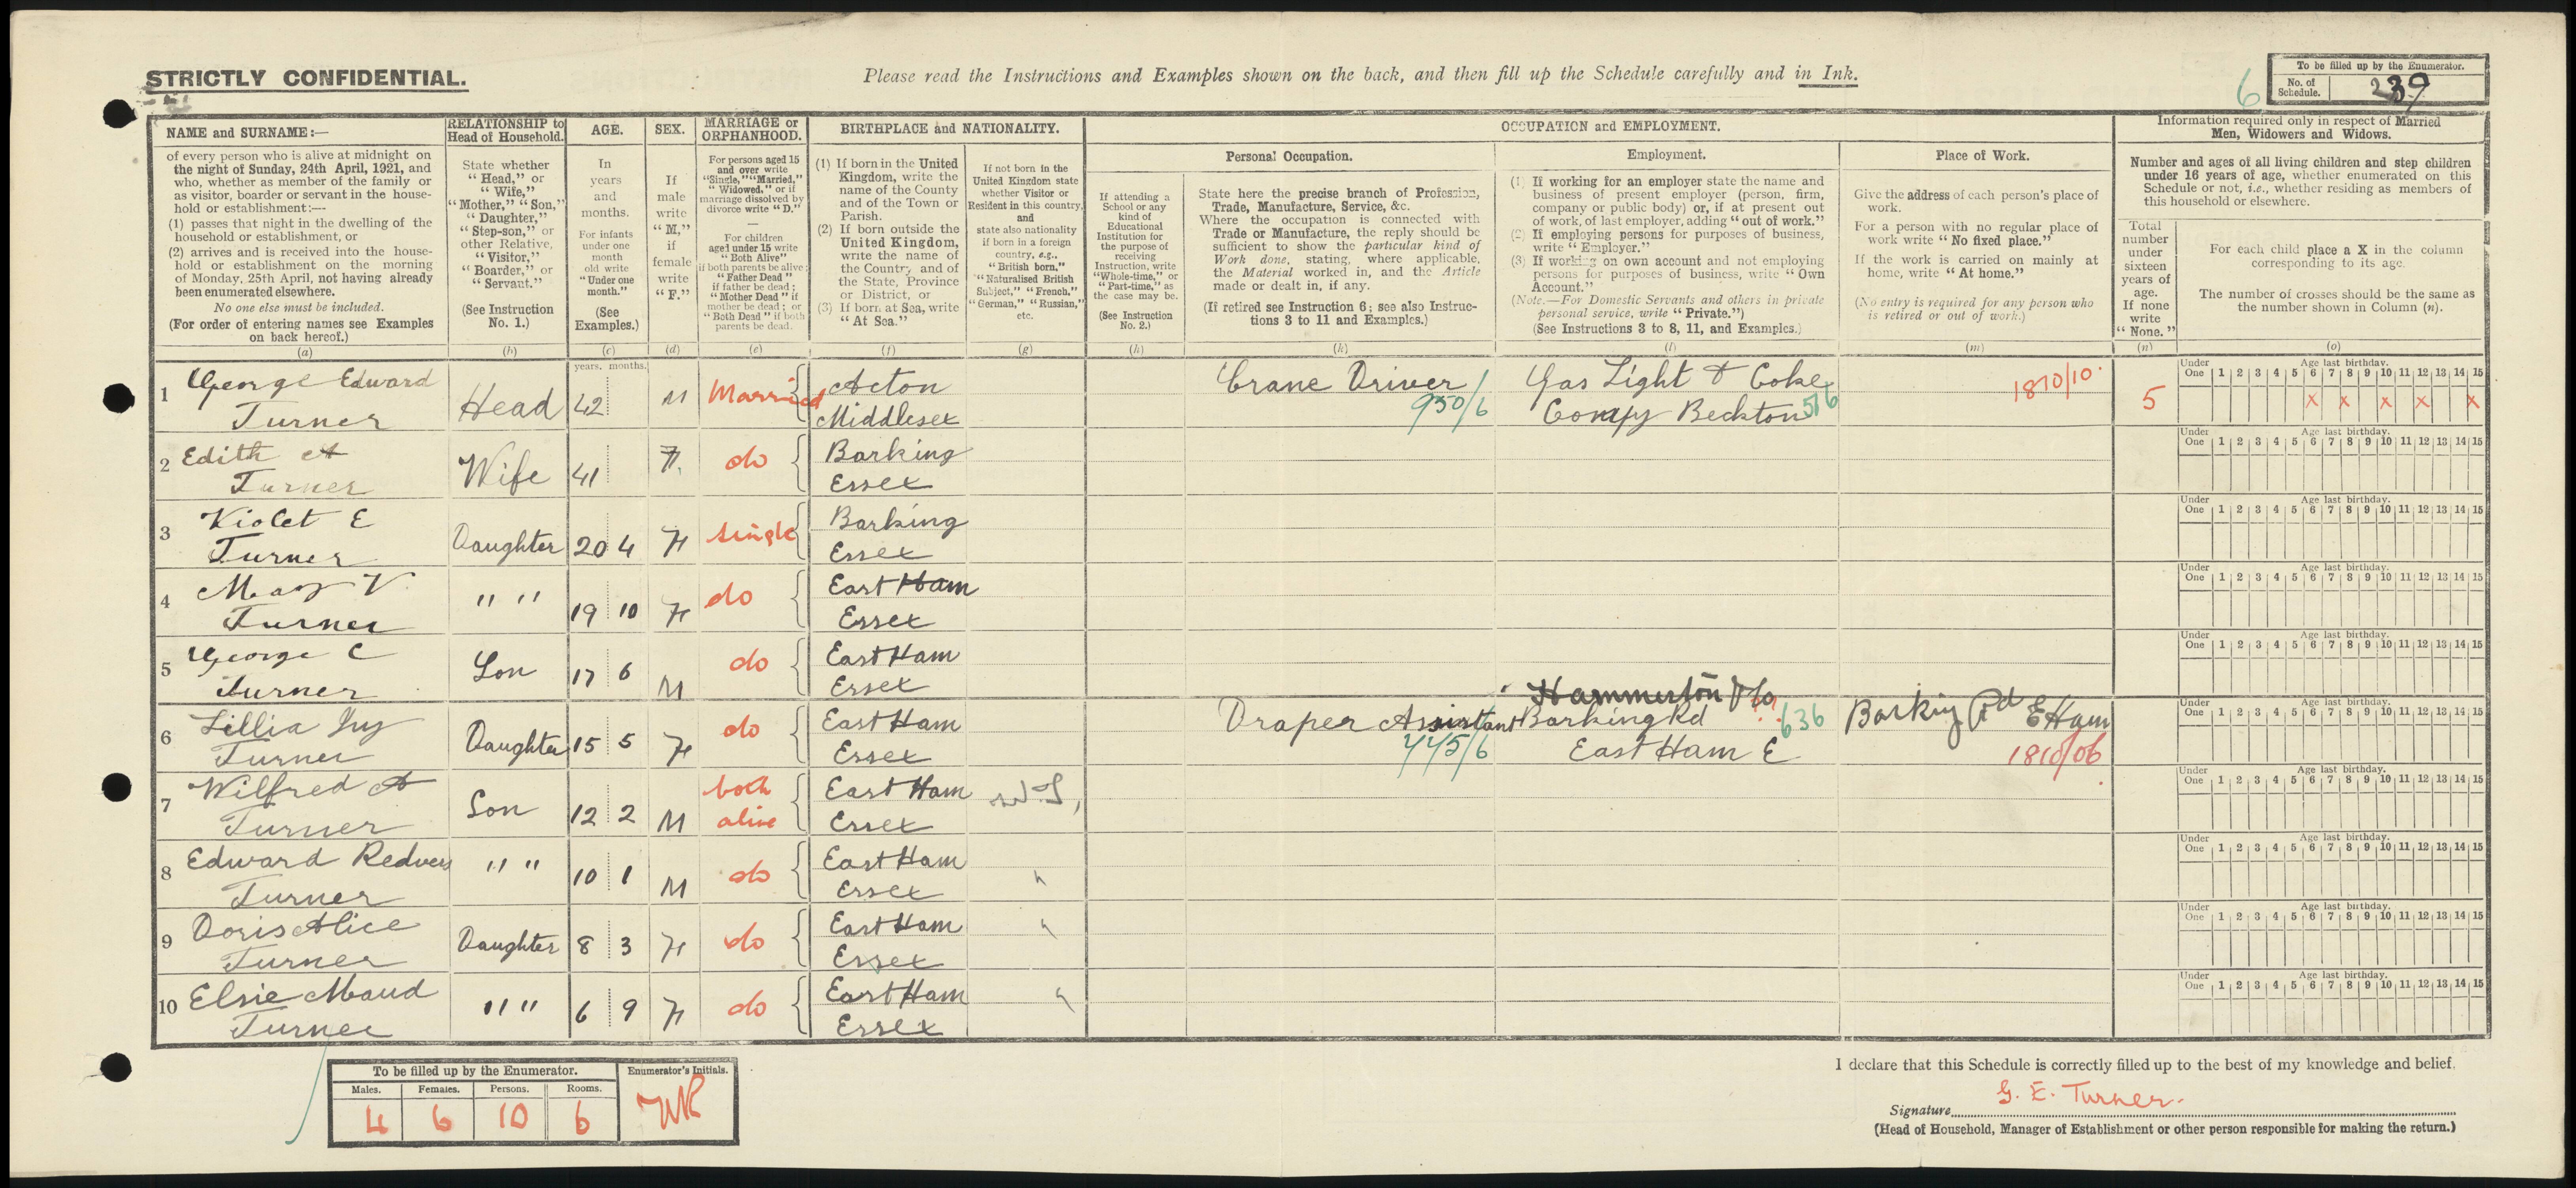 STRICTLY CONFIDENTIAL.
Please read the Instructions and Examples shown on the back, and then fill up the Schedule carefully and in Ink.
6
To be filled up by the Enumerator.
No. of Schedule. 239
NAME and SURNAME:—
of every person who is alive at midnight on
the night of Sunday, 24th April, 1921, and
who, whether as member of the family or
as visitor, boarder or servant in the house-
hold or establishment:—
(1) passes that night in the dwelling of the
household or establishment, or
(2) arrives and is received into the house-
hold or establishment on the morning
of Monday, 25th April, not having already
been enumerated elsewhere.
No one else must be included.
(For order of entering names see Examples
on back hereof.)
(a)
RELATIONSHIP to
Head of Household.
State whether
"Head," or
"Wife,"
"Mother," "Son,"
"Daughter,"
"Step-son," or
other Relative,
"Visitor,"
"Boarder," or
"Servant."
(See Instruction
No. 1.)
(b)
AGE.
In
years
and
months.
For infants
under one
month
old write
"Under one
month."
(See
Examples.)
(c)
SEX.
If
male
write
"M,"
if
female
write
"F."
(d)
MARRIAGE or
ORPHANHOOD.
For persons aged 15
and over write
"Single," "Married,"
"Widowed," or if
marriage dissolved by
divorce write "D."
For children
aged under 15 write
"Both Alive"
if both parents be alive;
"Father Dead"
if father be dead;
"Mother Dead" if
mother be dead; or
"Both Dead" if both
parents be dead.
(e)
BIRTHPLACE and NATIONALITY.
(1) If born in the United
Kingdom, write the
name of the County
and of the Town or
Parish.
(2) If born outside the
United Kingdom,
write the name of
the Country and of
the State, Province
or District, or
(3) If born at Sea, write
"At Sea."
(f)
If not born in the
United Kingdom state
whether Visitor or
Resident in this country,
and
state also nationality
if born in a foreign
country, e.g.,
"British born,"
"Naturalised British
Subject," "French,"
"German," "Russian,"
etc.
(g)
OCCUPATION and EMPLOYMENT.
If attending a
School or any
kind of
Educational
Institution for
the purpose of
receiving
Instruction, write
"Whole-time," or
"Part-time," as
the case may be.
(See Instruction
No. 2.)
(h)
Personal Occupation.
State here the precise branch of Profession,
Trade, Manufacture, Service, &c.
Where the occupation is connected with
Trade or Manufacture, the reply should be
sufficient to show the particular kind of
Work done, stating, where applicable,
the Material worked in, and the Article
made or dealt in, if any.
(If retired see Instruction 6; see also Instruc-
tions 3 to 11 and Examples.)
(k)
Employment.
(1) If working for an employer state the name and
business of present employer (person, firm,
company or public body) or, if at present out
of work, of last employer, adding "out of work."
(2) If employing persons for purposes of business,
write "Employer."
(3) If working on own account and not employing
persons for purposes of business, write "Own
Account."
(Note.—For Domestic Servants and others in private
personal service, write "Private.")
(See Instructions 3 to 8, 11, and Examples.)
(l)
Place of Work.
Give the address of each person's place of
work.
For a person with no regular place of
work write "No fixed place."
If the work is carried on mainly at
home, write "At home."
(No entry is required for any person who
is retired or out of work.)
(m)
Information required only in respect of Married
Men, Widowers and Widows.
Number and ages of all living children and step children
under 16 years of age, whether enumerated on this
Schedule or not, i.e., whether residing as members of
this household or elsewhere.
Total
number
under
sixteen
years of
age.
If none
write
"None."
(n)
For each child place a X in the column
corresponding to its age.
The number of crosses should be the same as
the number shown in Column (n).
(o)
years. months.
Under One Age last birthday. 1 2 3 4 5 6 7 8 9 10 11 12 13 14 15
1 George Edward Turner Head 42 M Married Acton Middlesex Crane Driver 950/6 Gas Light & Coke Compy Beckton 516 1810/10 5 x x x x x
Under One Age last birthday. 1 2 3 4 5 6 7 8 9 10 11 12 13 14 15
2 Edith A Turner Wife 41 F. do Barking Essex
Under One Age last birthday. 1 2 3 4 5 6 7 8 9 10 11 12 13 14 15
3 Violet E Turner Daughter 20 4 F single Barking Essex
Under One Age last birthday. 1 2 3 4 5 6 7 8 9 10 11 12 13 14 15
4 May V. Turner " " 19 10 F do East Ham Essex
Under One Age last birthday. 1 2 3 4 5 6 7 8 9 10 11 12 13 14 15
5 George C Turner Son 17 6 M do East Ham Essex
Under One Age last birthday. 1 2 3 4 5 6 7 8 9 10 11 12 13 14 15
6 Lillia Ivy Turner Daughter 15 5 F do East Ham Essex Draper Assistant 775/6 Hammerton & Co Barking Rd East Ham E 636 Barking Rd E Ham 1810/06
Under One Age last birthday. 1 2 3 4 5 6 7 8 9 10 11 12 13 14 15
7 Wilfred A Turner Son 12 2 M both alive East Ham Essex
Under One Age last birthday. 1 2 3 4 5 6 7 8 9 10 11 12 13 14 15
8 Edward Redvers Turner " " 10 1 M do East Ham Essex "
Under One Age last birthday. 1 2 3 4 5 6 7 8 9 10 11 12 13 14 15
9 Doris Alice Turner Daughter 8 3 F do East Ham Essex "
Under One Age last birthday. 1 2 3 4 5 6 7 8 9 10 11 12 13 14 15
10 Elsie Maud Turner " " 6 9 F do East Ham Essex "
To be filled up by the Enumerator.
Enumerator's Initials.
Males. Females. Persons. Rooms.
4 6 10 6
I declare that this Schedule is correctly filled up to the best of my knowledge and belief.
Signature G. E. Turner.
(Head of Household, Manager of Establishment or other person responsible for making the return.)